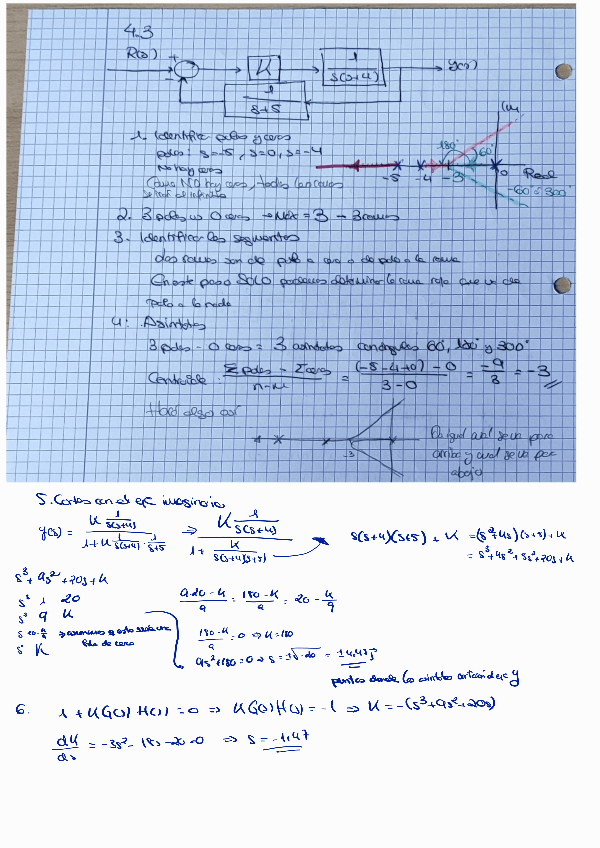 4.3
R(s) + - K 1 / s(s+4) y(s)
1 / s+5
1. Identificar polos y ceros
polos: s=-5, s=0, s=-4
No hay ceros
Como NO hay ceros, todas las ramas
se irán al infinito
Im
180° 60°
-5 -4 -3 0 Real
-60°=300°
2. 3 polos vs 0 ceros → Máx = 3 → 3 ramas
3. Identificar los segmentos
dos ramas son de polo a cero o de polo a la rama
En este paso SOLO podemos determinar la rama roja que va de
polo a la nada
4. Asíntotas
3 polos - 0 ceros = 3 asíntotas con ángulos 60°, 180° y 300°
Centroide: Σ polos - Σ ceros / n-m = (-5-4+0) - 0 / 3-0 = -9/3 = -3
Hará algo así
-3
Da igual cual se va para
arriba y cual se va por
abajo
5. Cortes con el eje imaginario
y(s) = K 1/s(s+4) / 1+K 1/s(s+4) · 1/s+5 ⇒ K 1/s(s+4) / 1 + K/s(s+4)(s+5)
s(s+4)(s+5) + K = (s²+4s)(s+5)+K
= s³+4s²+5s²+20s+K
s³+9s²+20s+K
s³ 1 20
s² 9 K
s 20-K/9 ⇒ asumimos q esto sería una
fila de ceros
s⁰ K
9·20-K / 9 = 180-K / 9 = 20 - K/9
180-K / 9 = 0 ⇒ K=180
9s²+180=0 ⇒ s=±√-20 = ±4,47j
puntos donde las asíntotas cortan al eje y
6. 1 + KG(s)H(s) = 0 ⇒ KG(s)H(s) = -1 ⇒ K = -(s³+9s²+20s)
dK/ds = -3s²-18s-20=0 ⇒ s=-1,47